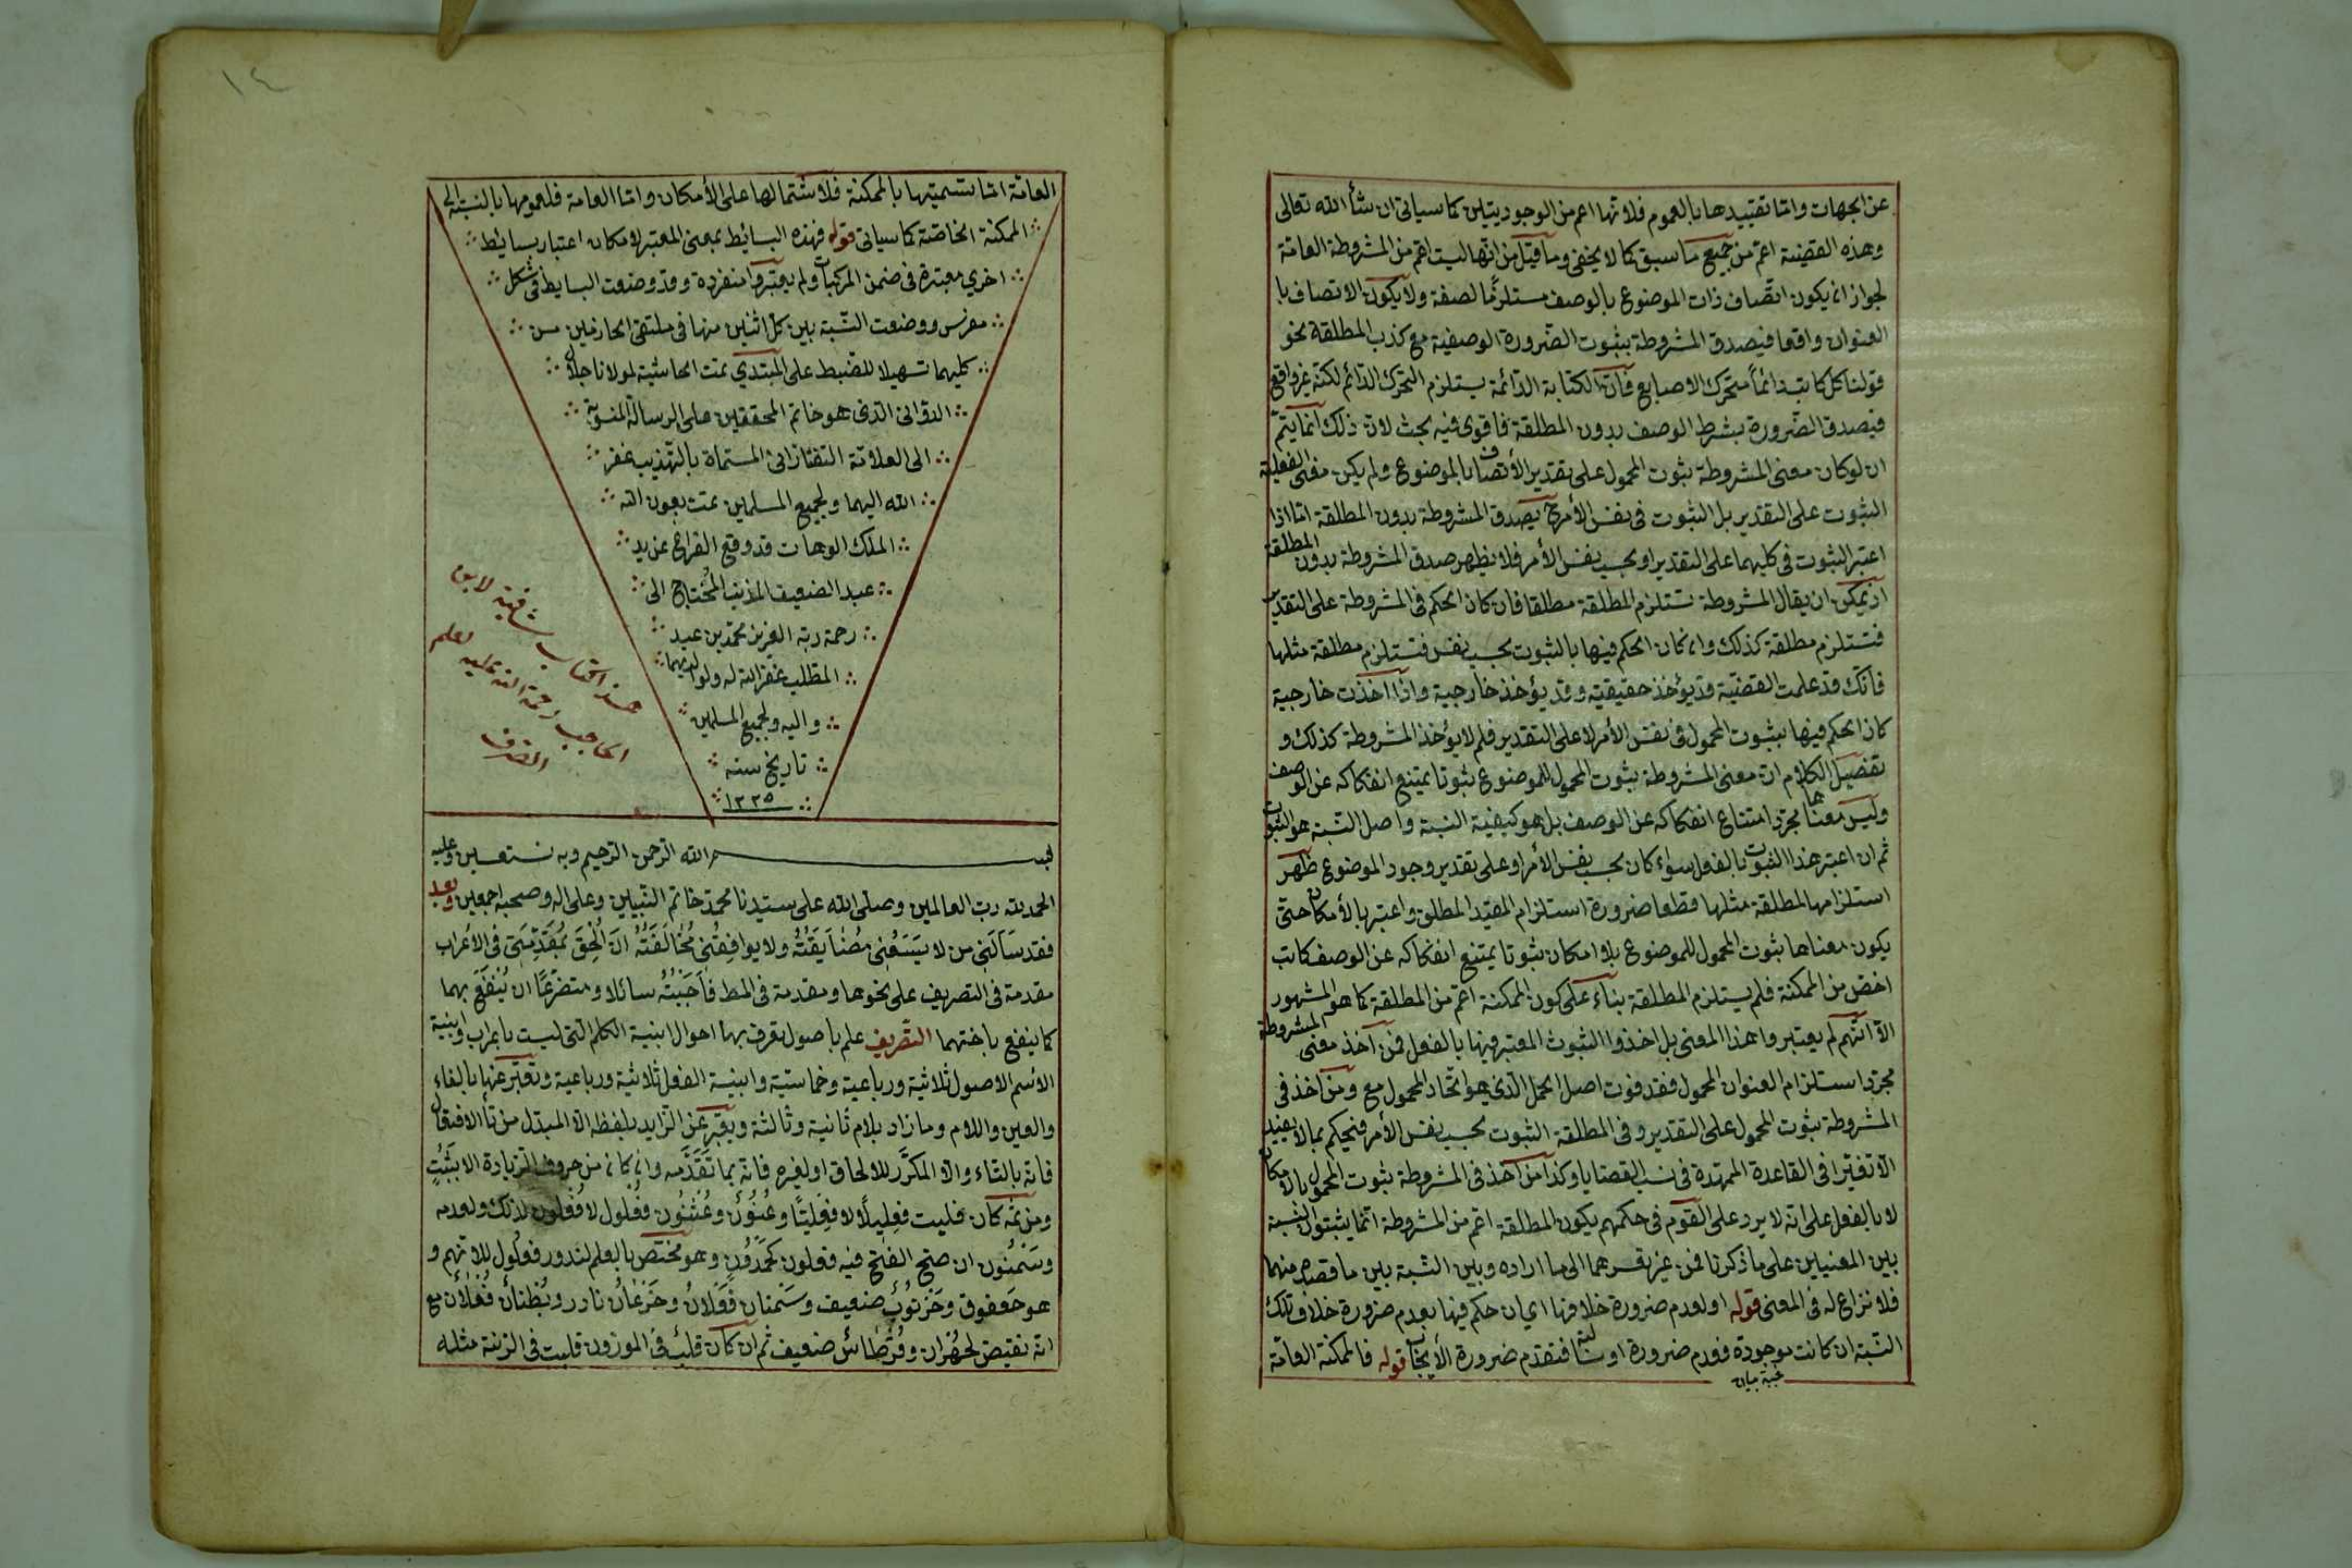 عن الجهات واما تقييدها بالعموم فلانها اعم من الوجوديتين كما سياتى ان شأ الله تعالى
وهذه القضية اعم من جميع ما سبق كما لا يخفى وما قيل من انها ليست اعم من المشروطة العامة
لجواز ان يكون اتصاف ذات الموضوع بالوصف مستلزما لصفة ولا يكون الاتصاف با
العنوان واقعا فيصدق المشروطة بثبوت الضرورة الوصفية مع كذب المطلقة نحو
قولنا كل كاتب دائماً متحرك الاصابع فان الكتابة الدائمة يستلزم التحرك الدائم لكنه غير واقع
فيصدق الضرورة بشرط الوصف بدون المطلقة فاقوى فيه بحث لان ذلك انما يتم
ان لو كان معنى المشروطة ثبوت المحمول على تقدير الأتصاف بالموضوع ولم يكن معنى الفعلية
الثبوت على التقدير بل الثبوت فى نفس الأمر ح يصدق المشروطة بدون المطلقة اما اذا
اعتبر الثبوت فى كليهما على التقدير او بحسب نفس الأمر فلا نظهر صدق المشروطة بدون المطلقة
اذ يمكن ان يقال المشروطة تستلزم المطلقة مطلقا فان كان الحكم فى المشروطة على التقدير
فتستلزم مطلقة كذلك وان كان الحكم فيها بالثبوت بحسب نفس فتستلزم مطلقة مثلها
فانك قد علمت القضية قد يؤخذ حقيقية وقد يؤخذ خارجية واذا اخذت خارجية
كان الحكم فيها بثبوت المحمول فى نفس الأمر لا على التقدير فلم لا يؤخذ المشروطة كذلك و
تفصيل الكلام ان معنى المشروطة ثبوت المحمول للموضوع ثبوتا يمتنع انفكاكه عن الوصف
وليس معناها مجرد امتناع انفكاكه عن الوصف بل هو كيفية النسبة واصل النسبة هو الثبوت
ثم ان اعتبر هذا الثبوت بالفعل سواء كان بحسب نفس الأمر او على تقدير وجود الموضوع ظهر
استلزامها المطلقة مثلها قطعا ضرورة استلزام المقيد المطلق واعتبر بالأمكان حتى
يكون معناها ثبوت المحمول للموضوع بلا امكان ثبوتا يمتنع انفكاكه عن الوصف كانت
اخص من الممكنة فلم يستلزم المطلقة بناء على كون الممكنة اعم من المطلقة كما هو المشهور
الا انهم لم يعتبروا هذا المعنى بل اخذوا الثبوت المعتبر فيها بالفعل فمن آخذ معنى المشروطة
مجرد استلزام العنوان المحمول فقد فوت اصل الحمل الذى هو اتحاد المحمول مع ومن آخذ فى
المشروطة ثبوت المحمول على التقدير وفى المطلقة الثبوت بحسب نفس الأمر فيحكم بما لا يفيد
الا تغيرا فى القاعدة الممهدة فى نسب القضايا وكذا من آخذ فى المشروطة ثبوت المحمول بالامكان
لا بالفعل على انه لا يرد على القوم فى حكمهم يكون المطلقة اعم من المشروطة انما يثبتوا النسبة
بين المعنيين على ما ذكرنا فمن غير تفسيرهما الى ما اراده وبين النسبة بين ما قصده منهما
فلا نزاع له فى المعنى قوله او لعدم ضرورة خلافها اي ان حكم فيها بعدم ضرورة خلاف تلك
النسبة ان كانت موجودة فعدم ضرورة او سالبة فتقدم ضرورة الأيجاب قوله فالممكنة العامة
العامة اما تسميتها بالممكنة فلاشتمالها على الأمكان واما العامة فلعمومها بالنسبة الى
الممكنة الخاصة كما سياتى قوله فهذه البسائط بمعنى المعتبر لامكان اعتبار بسائط
اخري معتبرة فى ضمن المركبات ولم يعتبروا منفردة وقد وضعت البسايط فى شكل
مفرس ووضعت النسبة بين كل اثنين منها فى ملتقى الحازمين من
كليهما تسهيلا للضبط على المبتدي تمت الحاشية لمولانا جلال
الدوانى الذى هو خاتم المحققين على الرسالة المنسوبة
الى العلامة التفتازانى المسماة بالتهذيب غفر
الله اليهما ولجميع المسلمين تمت بعون الله
الملك الوهاب قد وقع الفراغ عن يد
عبد الضعيف المذنب المحتاج الى
رحمة ربه العزيز محمد بن عبد
المطلب غفر الله له ولوالديهما
واليه ولجميع المسلمين
تاريخ سنه
١٣٣٥
هذا كتاب شافية لابن
الحاجب رحمة الله عليه بعلم
الصرف
بسم الله الرحمن الرحيم وبه نستعين وعليه
الحمد لله رب العالمين وصلى الله على سيدنا محمد خاتم النبيين وعلى اله وصحبه اجمعين وبعد
فقد سَألَنِى من لا يَسَعُنِى مُضَايَقَتُهُ ولا يوافِقُنِى مُخَالَفَتُهُ ان اُلْحِقَ بمُقَدِّمَتِى فى الاعراب
مقدمة فى التصريف على نحوها ومقدمة فى الخط فَاَجَبْتُهُ سائلا ومتضرعًا ان يُنْفَعَ بهما
كما ينفع باختهما التصريف علم باصول تعرف بها احوال ابنية الكلم التى ليست باعراب وابنية
الاسم الاصول ثلاثية ورباعية وخماسية وابنية الفعل ثلاثية ورباعية وتعبر عنها بالفاء
والعين واللام وما زاد بلام ثانية وثالثة ويعبر عن الزايد بلفظه الا المبدل من تأ الافتعال
فانه بالتاء والا المكرَّر للالحاق او لغيره فانه بما تَقَدَّمه وان كان من حروف الزيادة الا بِثَبْتٍ
ومن ثمه كان حلتيت فعليلاً لا فعليتًا وسُحنُونٌ وعُثنُون فعُلول لا فعُلون لذلك ولعدمه
وسَحنُون ان صح الفتح فيه ففعلون كحَمدُون وهو مختص بالعلم لندور فعلول للاتهم و
هو صَعفوق وخَرنُوبٌ ضعيف وسَمنان فَعلانُ وخَزعَالُ نادر وبُطْنَانُ فُعْلانُ مع
انه نقيض لظهران وقُرطَاسٌ ضعيف ثم ان كان قلبٌ فى الموزون قلبت فى الزنة مثله